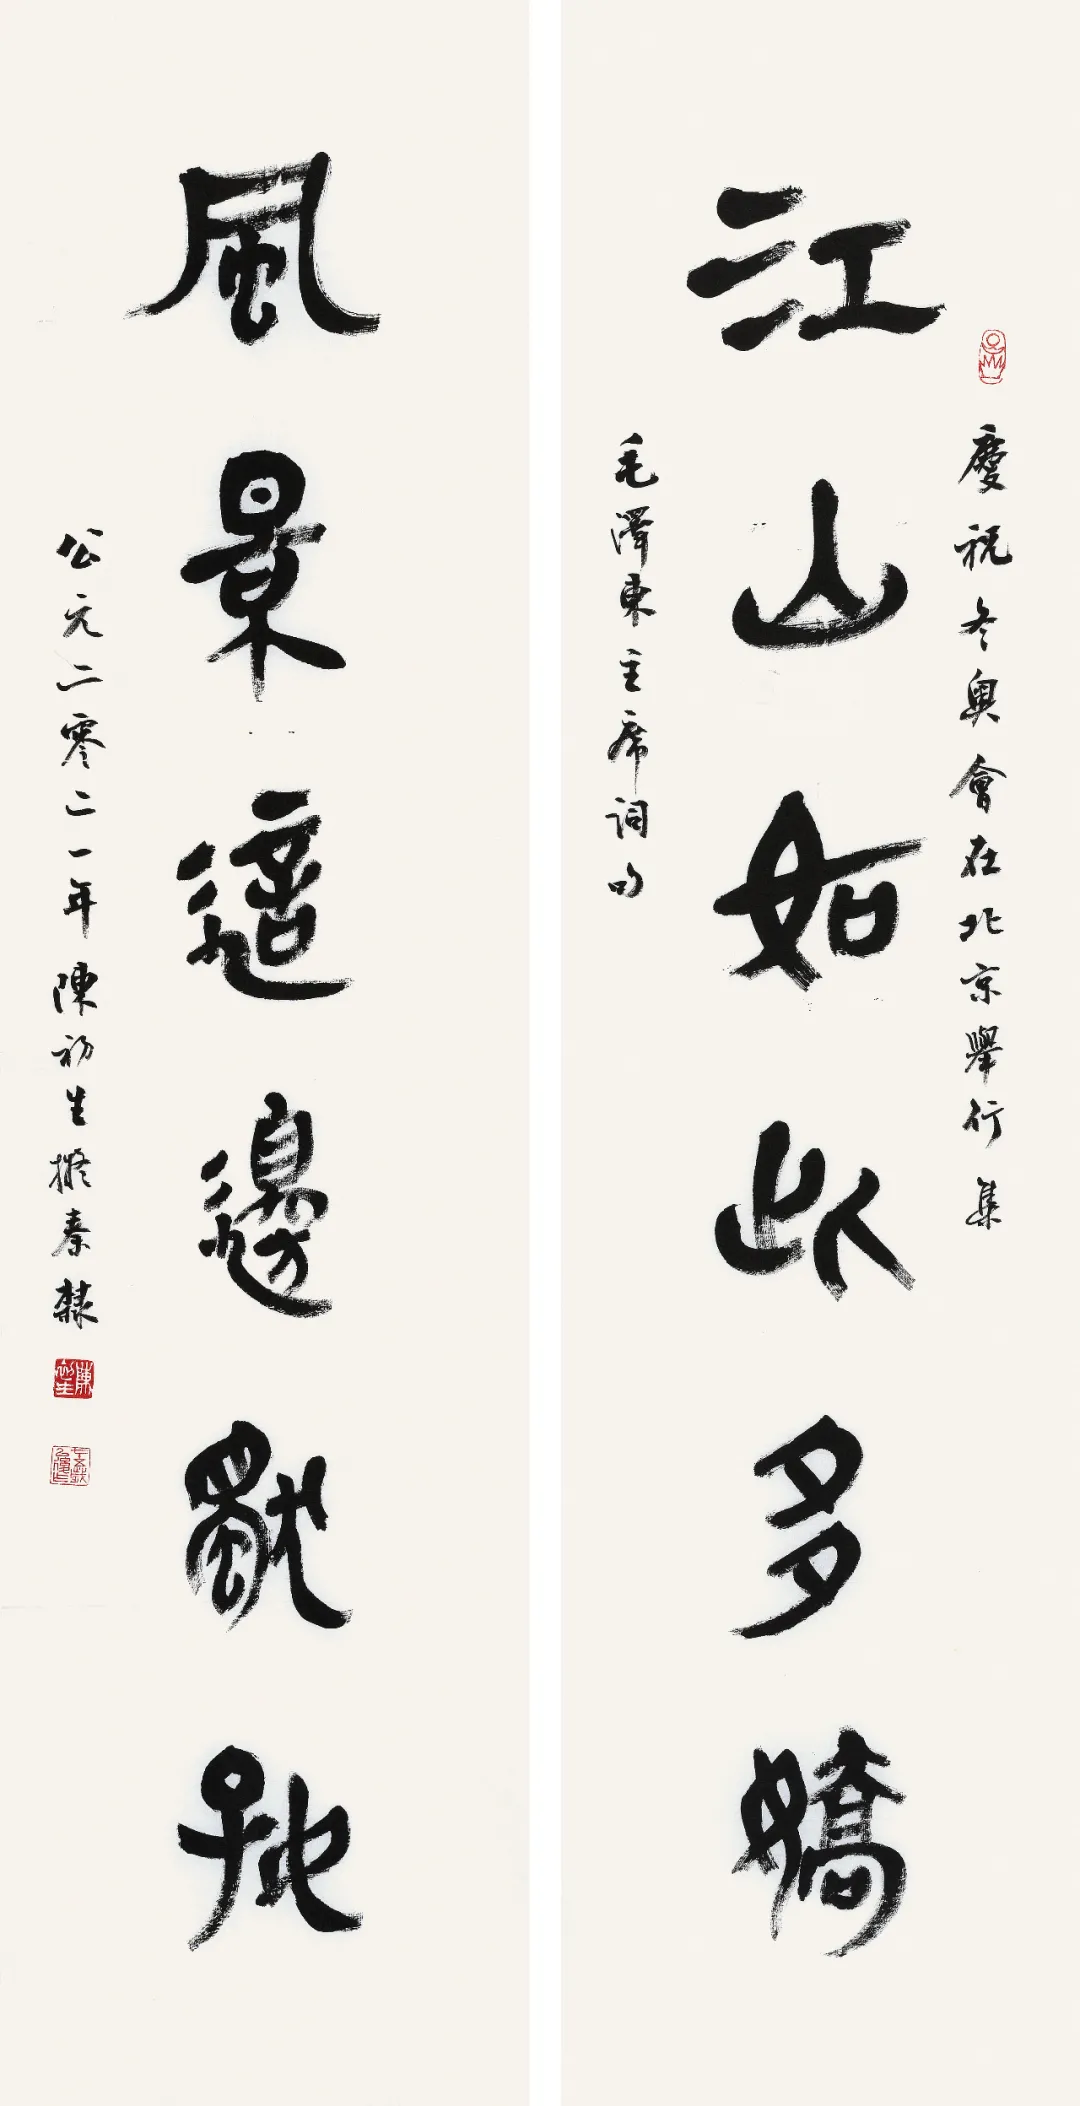 慶祝冬奧會在北京舉行集
江山如此多嬌
毛澤東主席詞句
風景這邊獨好
公元二零二一年陳初生擬秦隸
陳初生